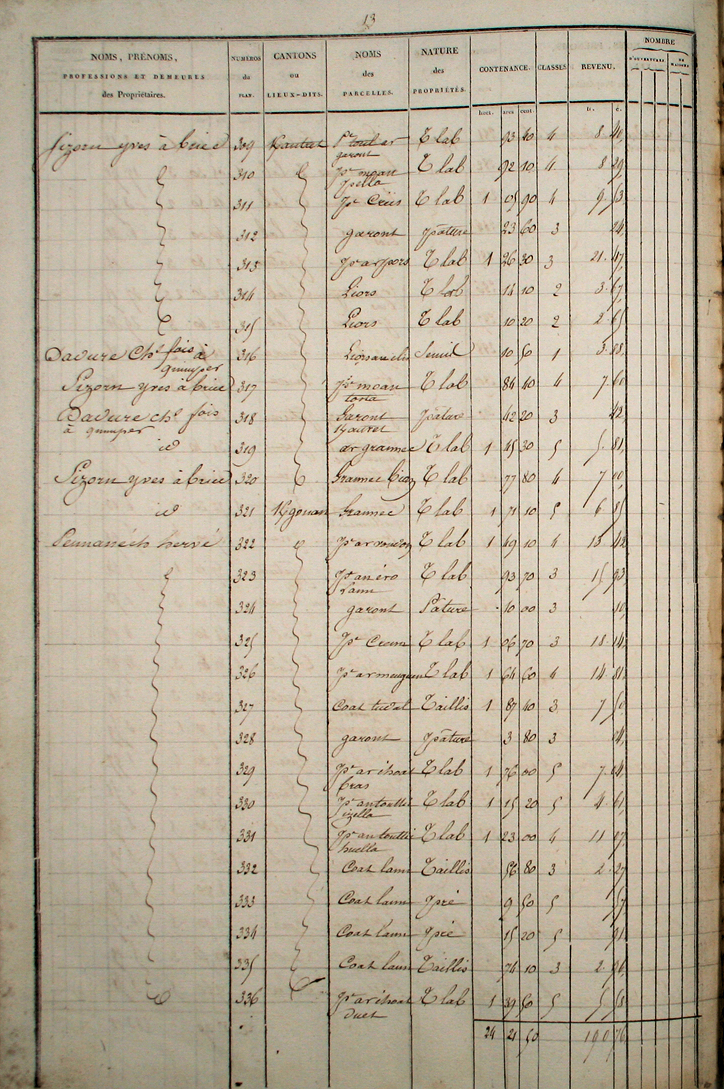 13
NOMS, PRÉNOMS, PROFESSIONS ET DEMEURES des Propriétaires. NUMÉROS du PLAN. CANTONS ou LIEUX-DITS. NOMS des PARCELLES. NATURE des PROPRIÉTÉS. CONTENANCE. CLASSES. REVENU. NOMBRE D'OUVERTURES. DE MAISONS.
hect. ares cent. fr. c.
Sizorn yves à briec 309 P. toul ar garont T lab 93 40 4 8 40
310 pc moan pella T lab 92 10 4 8 29
311 pc Creis T lab 1 05 90 4 9 53
312 garont pature 23 60 3 24
313 pc ar pors T lab 1 26 30 3 21 47
314 Liors T lab 14 10 2 3 67
315 Liors T lab 10 20 2 2 65
Davure Ch. fois à quimper 316 10 50 1 3 88
Sizorn yves à briec 317 pc moan tosta T lab 84 40 4 7 60
Davure ch. fois à quimper 318 Garont pature 42 20 3 42
id 319 ar grannec T lab 1 45 30 5 5 81
Sizorn yves à briec 320 Grannec bian T lab 77 80 4 7 00
id 321 Kgouan Grannec T lab 1 71 10 5 6 85
Pennanéch hervé 322 T lab 1 49 10 4 13 42
323 T lab 93 70 3 15 93
324 garont Pature 10 00 3 10
325 pc Creun T lab 1 06 70 3 18 14
326 T lab 1 64 60 4 14 81
327 Coat tudal Taillis 1 87 40 3 7 50
328 garont pature 3 80 3 04
329 pc ar choat bras T lab 1 76 00 5 7 04
330 pc antoullic izella T lab 1 15 20 5 4 61
331 pc antoullic huella T lab 1 23 00 4 11 07
332 Coat lann Taillis 56 80 3 2 27
333 Coat lann pré 9 50 5 57
334 Coat lann pré 15 20 5 91
335 Coat lann Taillis 74 10 3 2 96
336 pc ar choat duet T lab 1 39 50 5 5 58
24 21 50 190 76